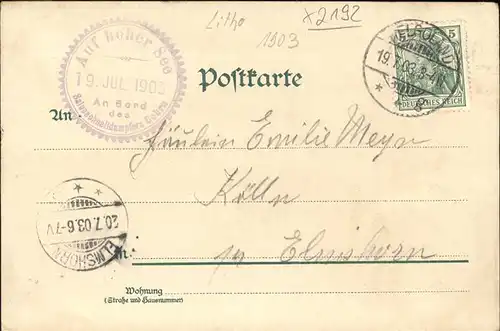 Litho
1903
x2192
Auf hoher See
19. JUL. 1903
An Bord
des
Salonschnelldampfers Cobra
HELGOLAND
19.7.03.3-4N
5
DEUTSCHES REICH
Postkarte
An
Fräulein Emilie Meyn
Kölln
pr Elmshorn
20.7.03.6-7V
ELMSHORN
in:
Wohnung
(Straße und Hausnummer)